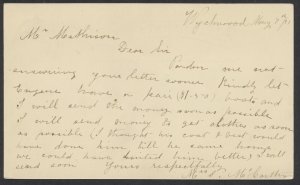 Wychwood May 7th
Mr Mathison
Dear Sir
Pardon me not
answering your letter sooner Kindly let
Eugene have a pair (No) boots and
I will send the money soon as possible
I will send money to get clothes as soon
as possible (I thought his coat & best would
have done him till he came home
we could have suited him better) will
send soon Yours respectfully
Mrs McCarthy